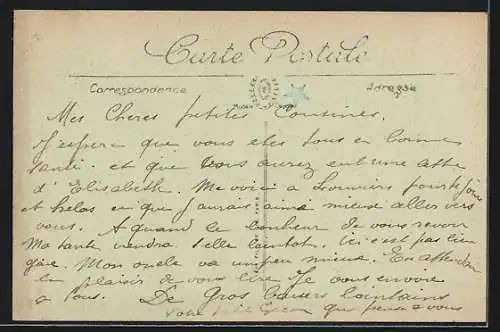 Carte Postale
Correspondence
Adresse
Mes Cheres petites Cousines.
J'espere que vous etes tous en bonne
santé. et que vous aurez eut une lettre
d'Elisabeth. Me voici a Louviers pour 15 jours
et helas en que j'aurais aimé mieux aller vers
vous. A quand le bonheur de vous revoir
Ma tante viendra t'elle bientot. Ici c'est pas bien
gaie. Mon oncle va un peu mieux. En attendant
le plaisir de vous lire Je vous envoie
a tous. De Gros baisers lointains
Votre petit qui pense a vous